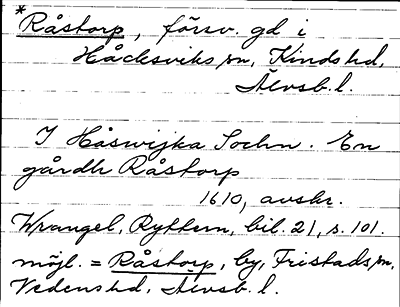 *Råstorp, försv. gd i
Håcksviks sn, Kinds hd,
Älvsb. l.
I Håswijka Sochn. En
gårdh Råstorp
1610, avskr.
Wrangel, Ryttern, bil. 21, s. 101.
möjl. = Råstorp, by, Fristads sn,
Vedens hd, Älvsb. l.